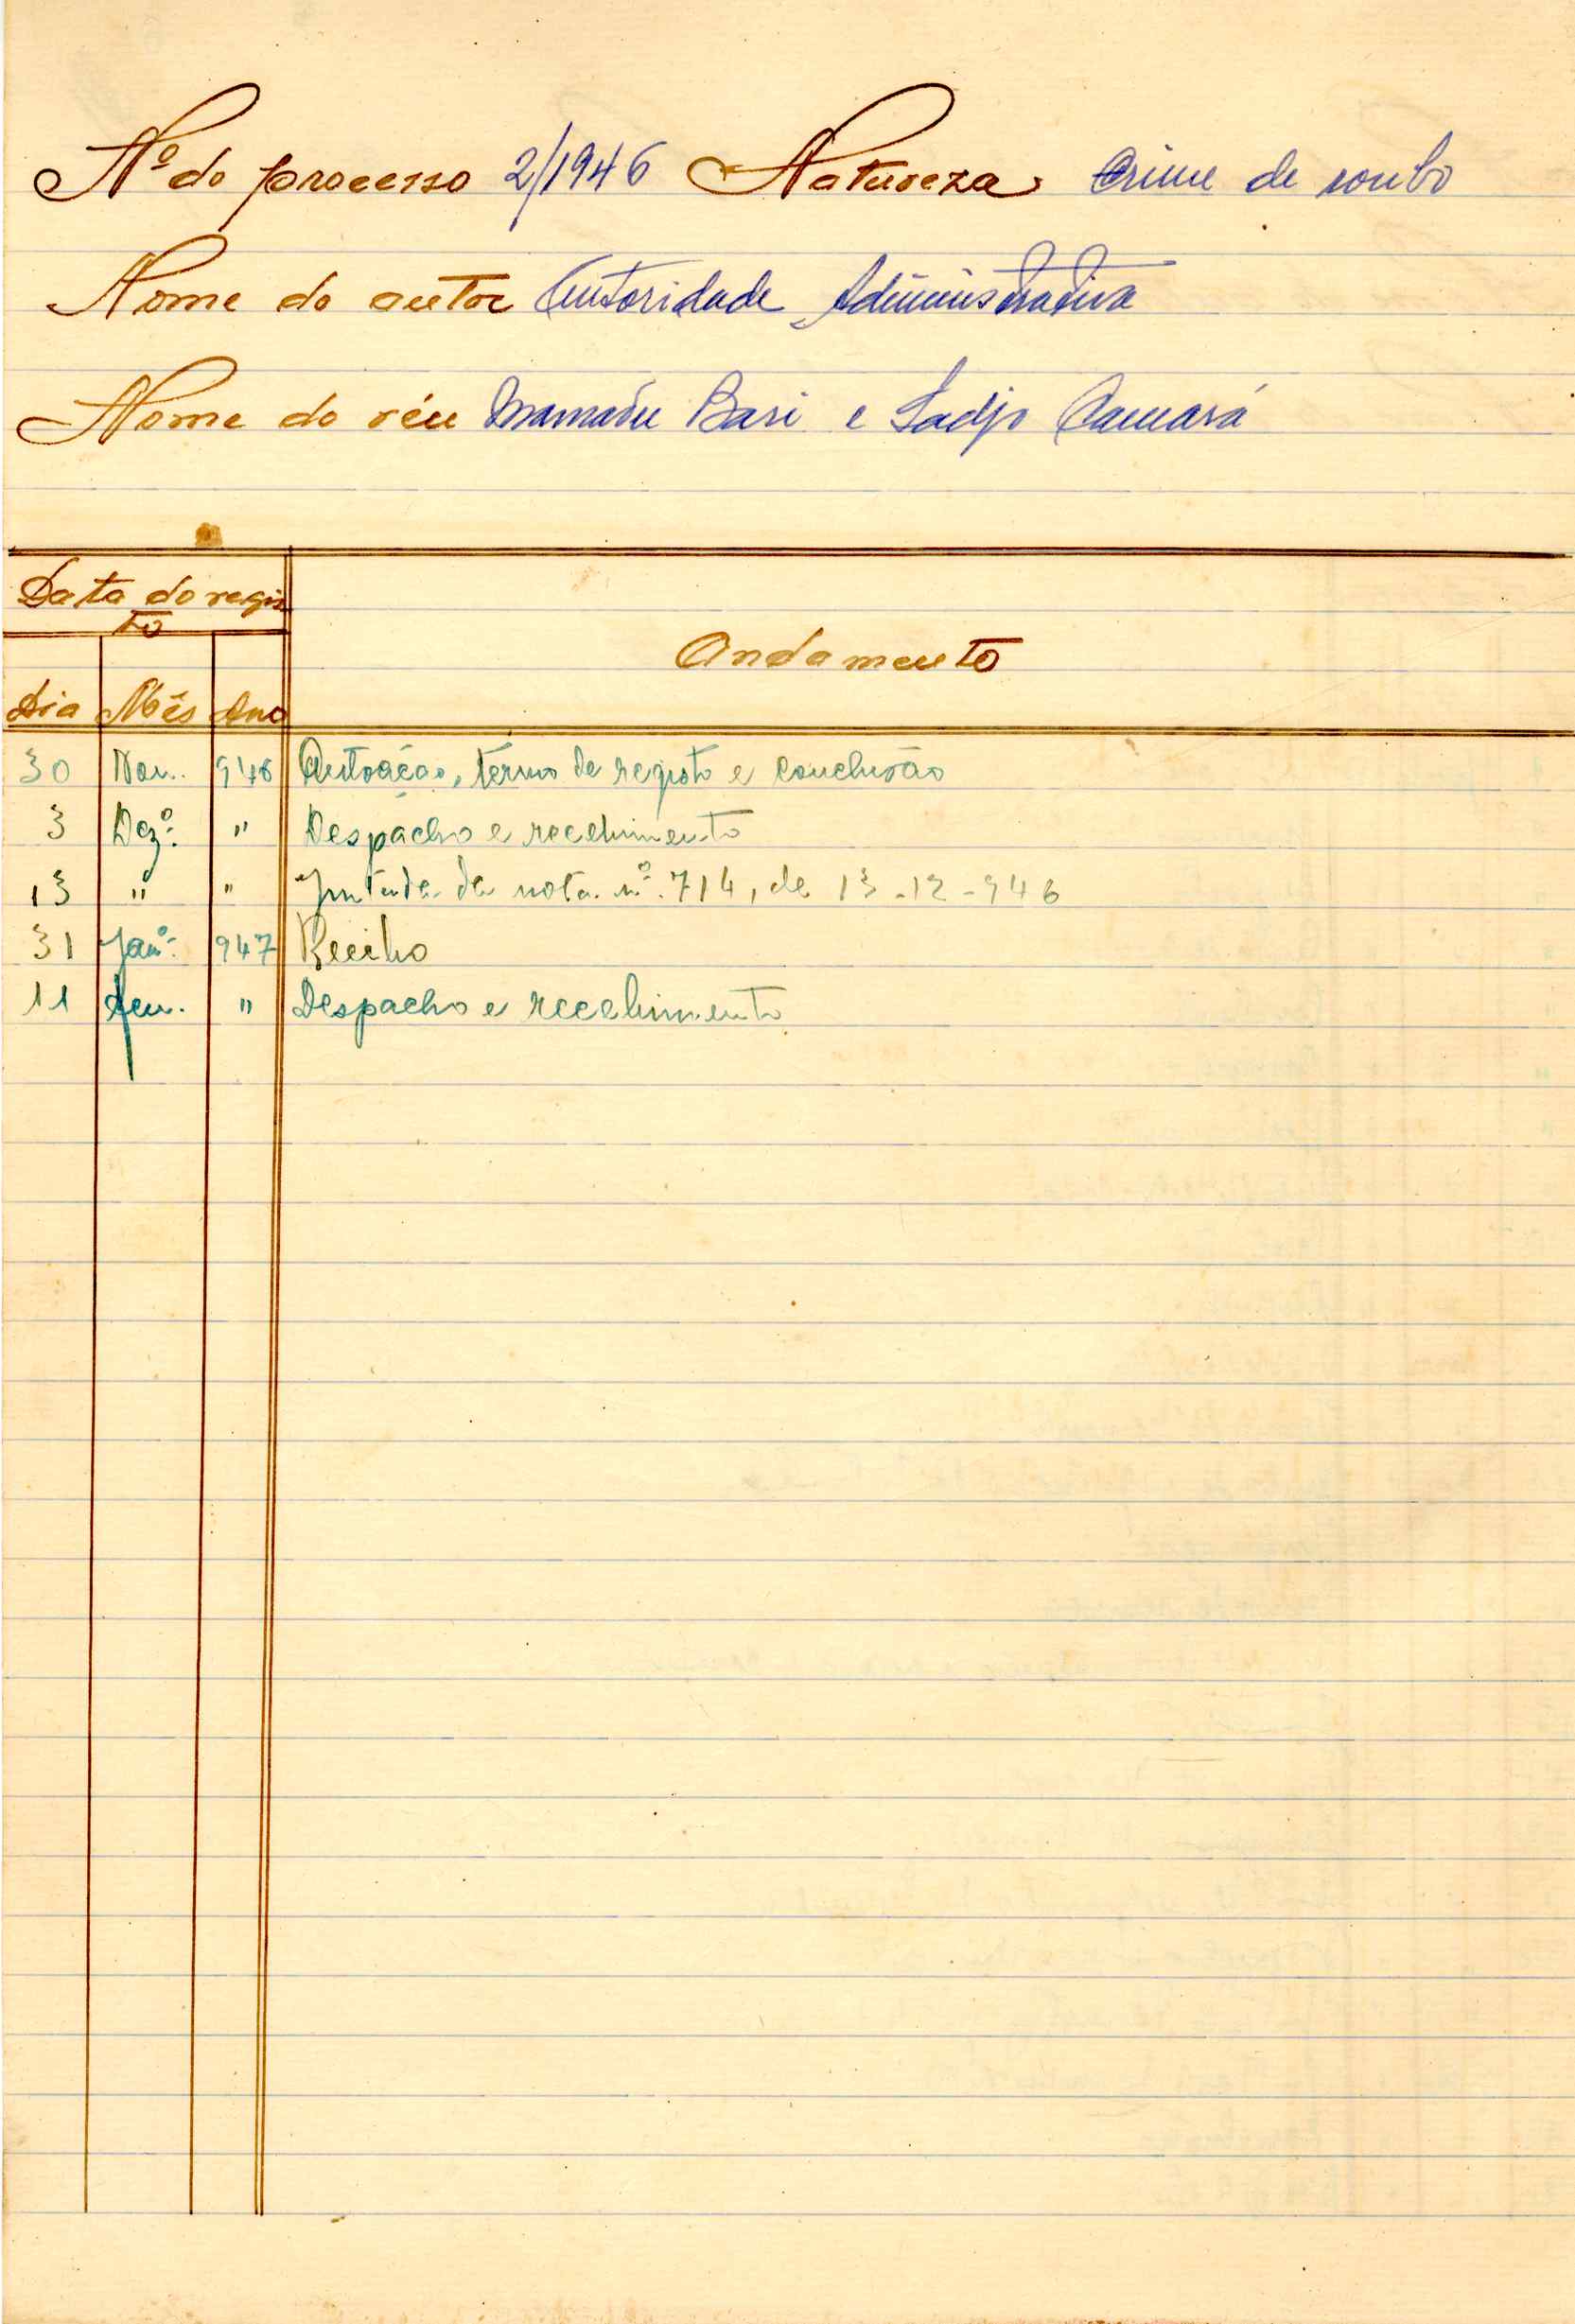 Nº do processo 2/1946 Natureza Crime de roubo
Nome do autor Autoridade Administrativa
Nome do réu Mamadu Bari e Sadjo Camará
Data do regis
to
Andamento
Dia Mês Ano
30 Nov. 946 Autoação, têrmo de registo e conclusão
3 Dezº. " Despacho e recebimento
13 " " Juntada da nota nº. 714, de 13-12-946
31 Janº. 947 Recibo
11 " Despacho e recebimento